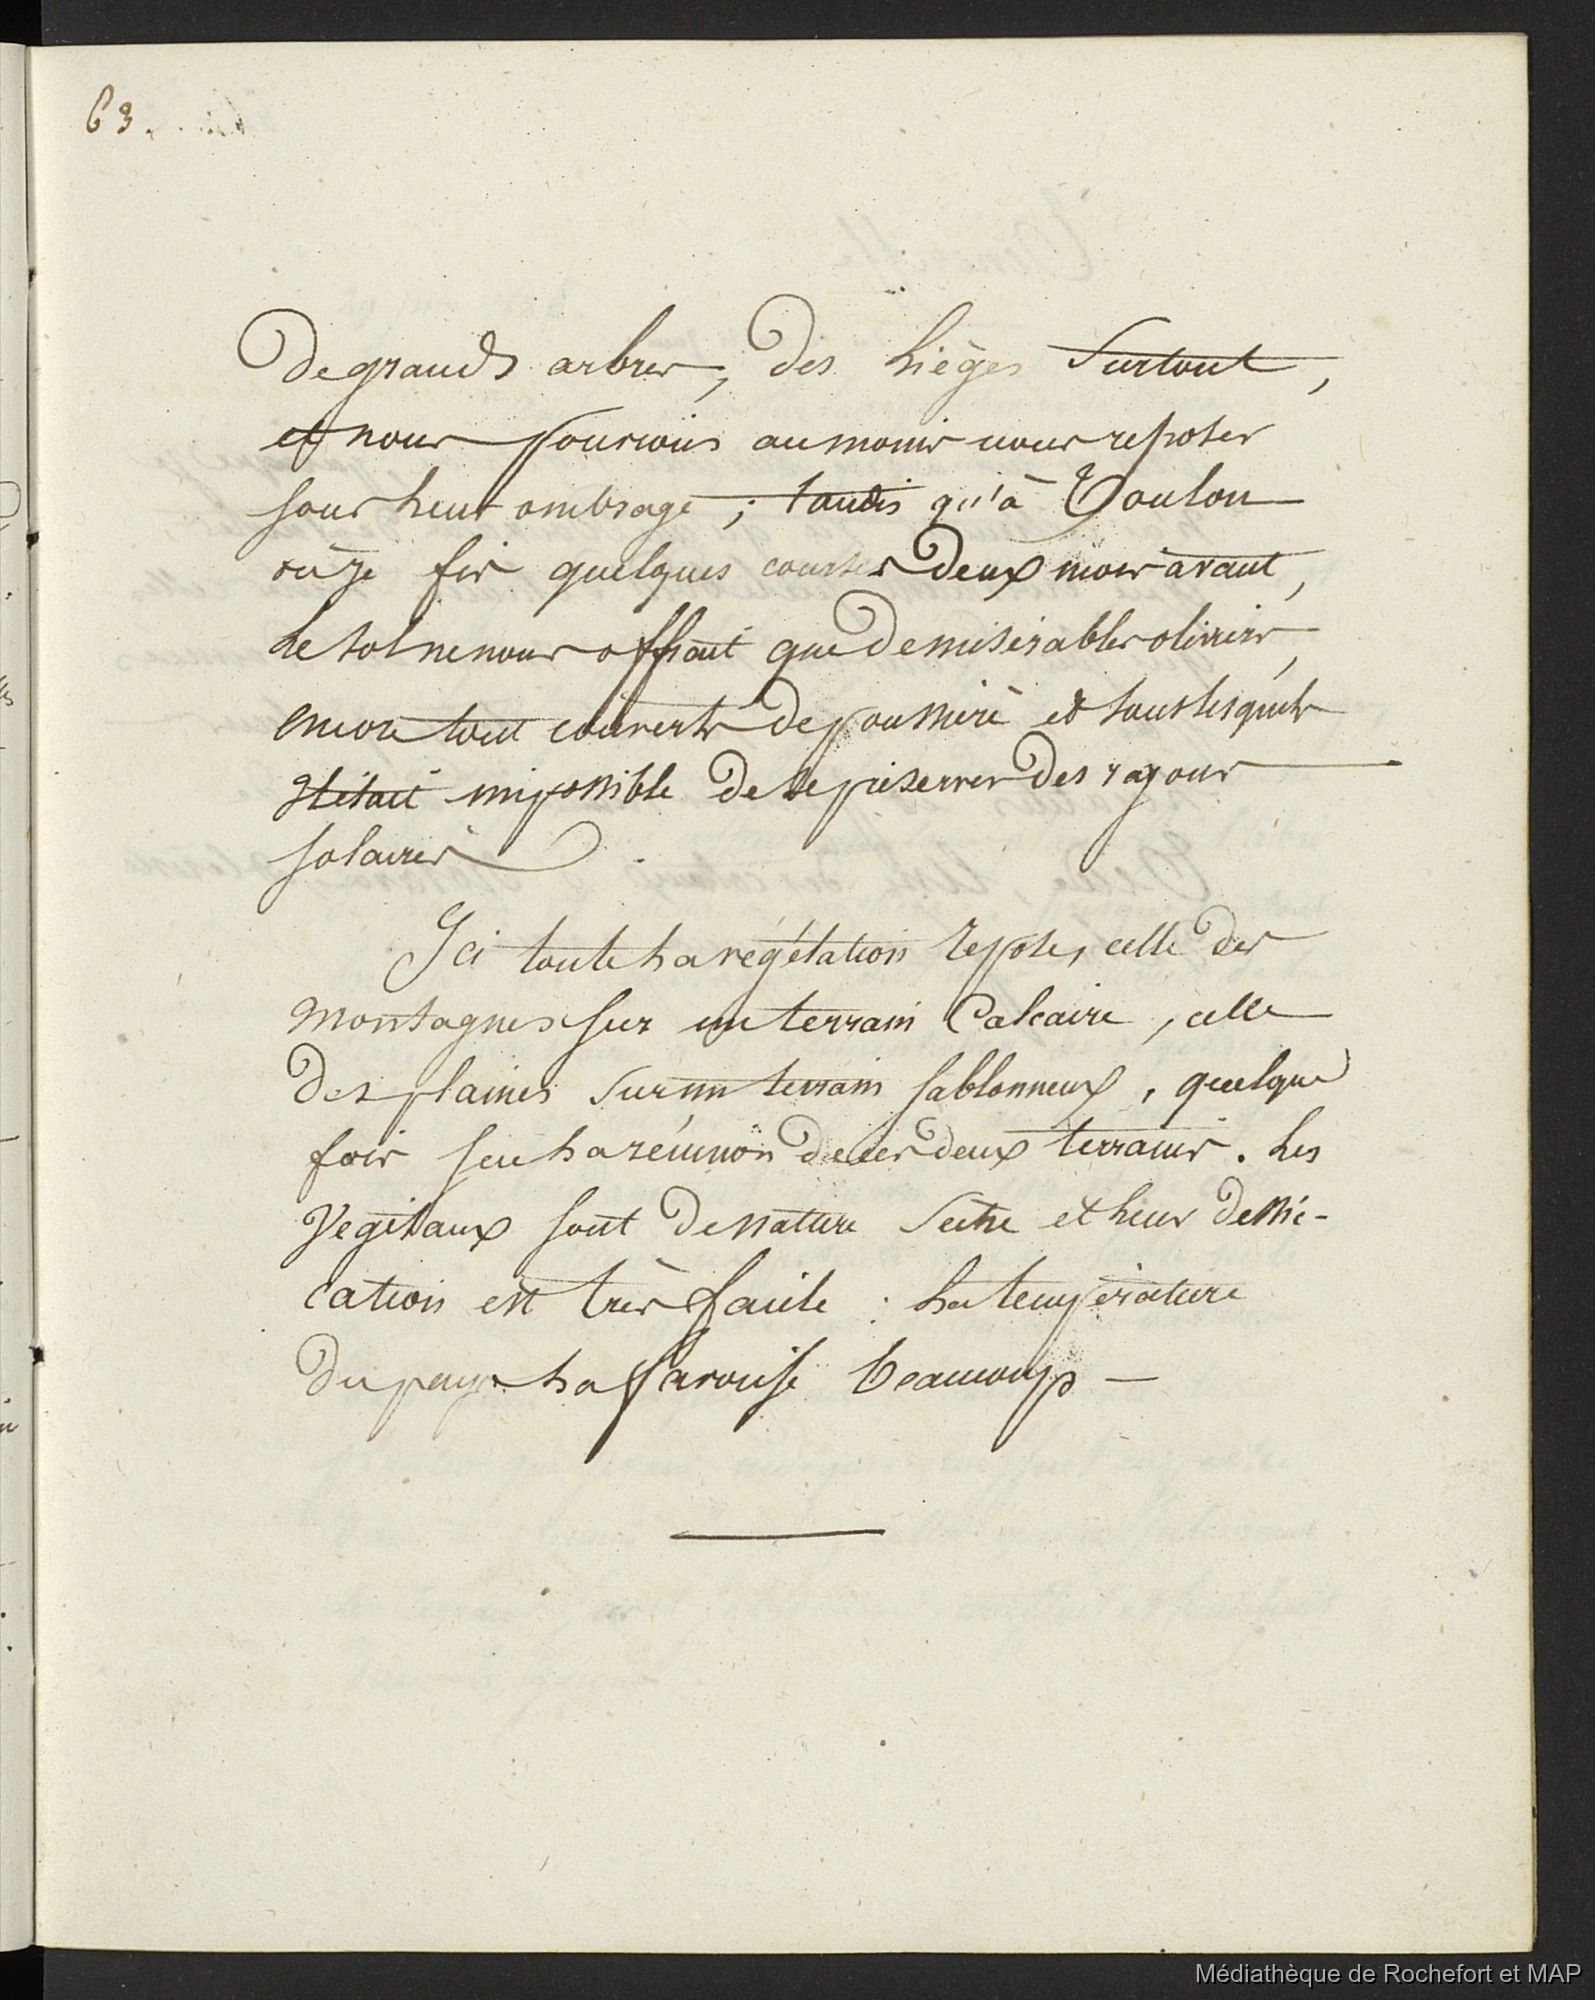 63.
De grands arbres, des lièges surtout,
et nous pouvions au moins nous reposer
sous leur ombrage ; tandis qu'à Toulon
où je fis quelques courses deux mois avant,
le sol ne nous offrait que de misérables oliviers,
encore tout couverts de poussière et sous lesquels
il était impossible de se préserver des rayons
solaires.
Ici toute la végétation repose, celle des
montagnes sur un terrain Calcaire, celle
des plaines sur un terrain sablonneux, quelque
fois sur la réunion de ces deux terrains. Les
Végétaux sont de nature sèche et leur dessic-
cation est très facile : la température
du pays la favorise beaucoup —
Médiathèque de Rochefort et MAP